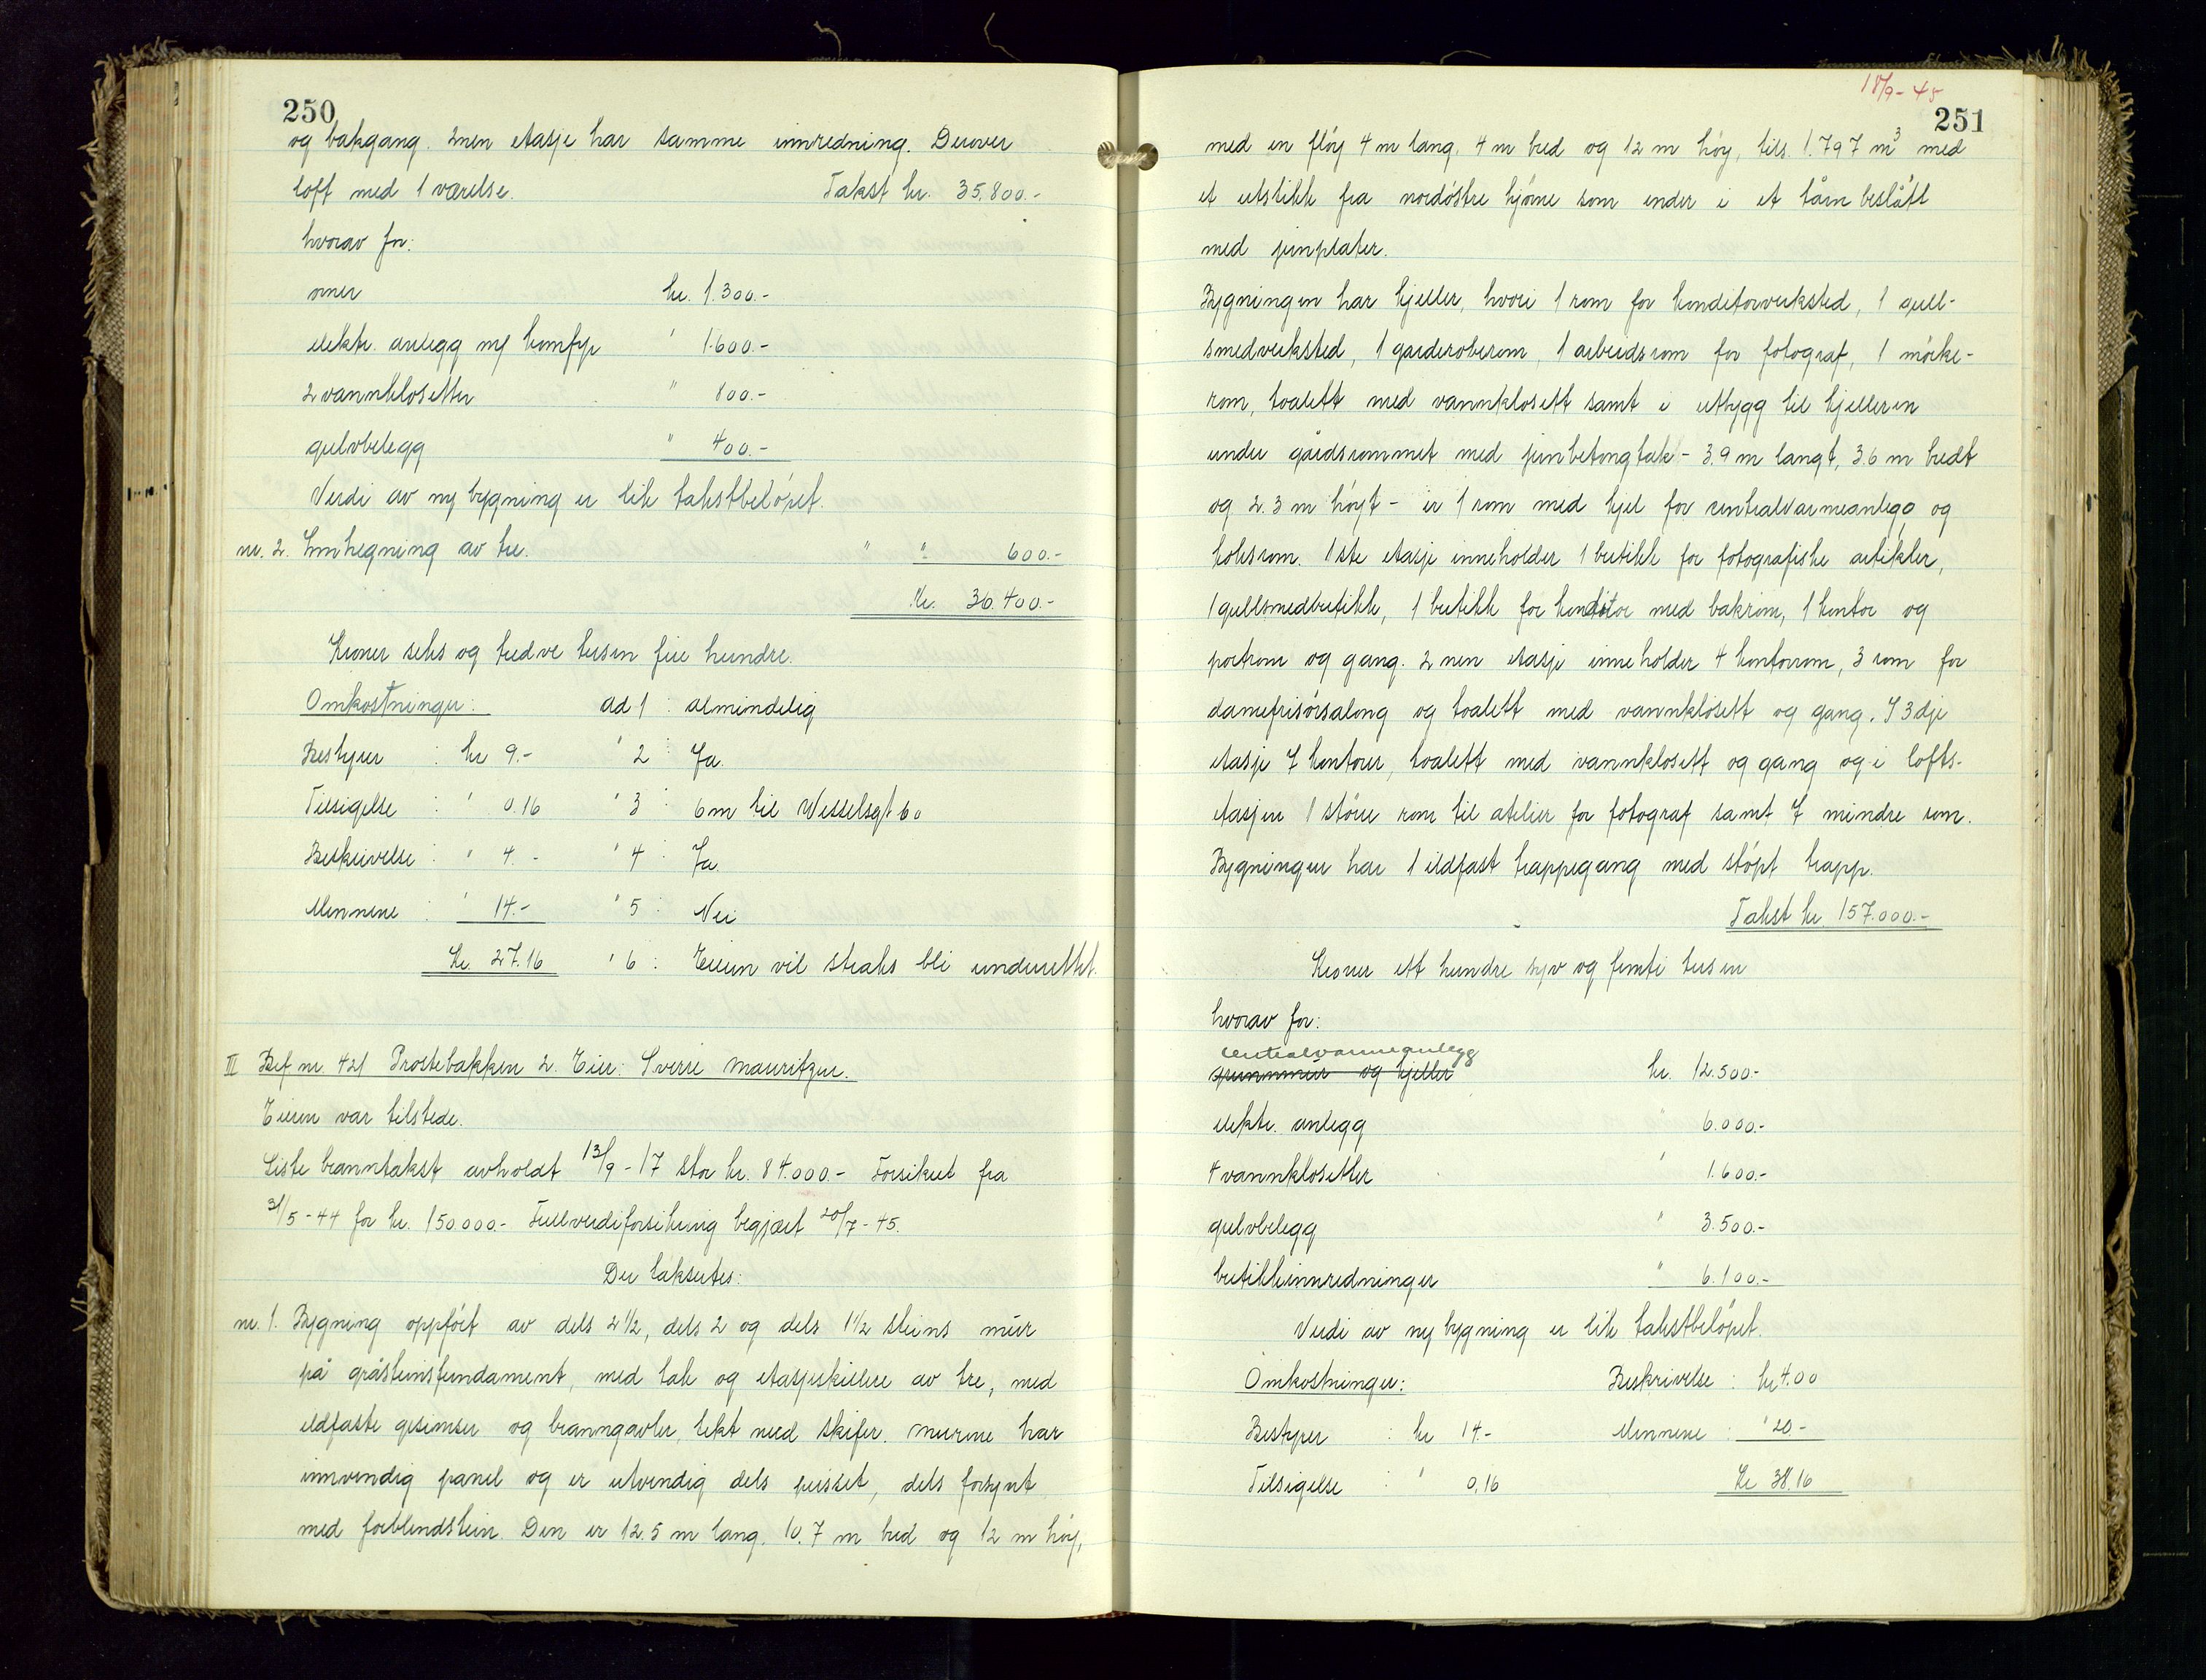 250
og bakgang. 2nen etasje har samme innredning. Derover
loft med 1 værelse. Takst kr. 35.800.-
hvorav for:
ovner kr. 1.300.-
elektr. anlegg m/ komfyr " 1.600.-
2 vannklosetter " 800.-
gulvbelegg " 400.-
Verdi av ny bygning er lik takstbeløpet.
nr. 2. Innhegning av tre. " " 600.-
Kr. 36.400.-
Kroner seks og tredve tusen fire hundre.
Omkostninger: ad 1 : almindelig
Bestyrer : kr 9.- " 2 : Ja.
Tilsigelse : " 0.16 " 3 : 6 m til Wesselsgt. 60
Beskrivelse : " 4.- " 4 : Ja.
Mennene : " 14.- " 5 : Nei
Kr. 27.16 " 6 : Eieren vil straks bli underrettet.
III Bef. nr. 421 Prostebakken 2. Eier: Sverre Mauritzen.
Eieren var tilstede.
Siste branntakst avholdt 13/9-17 stor kr. 84.000.- Forsikret fra
31/5-44 for kr. 150.000.- Fullverdiforsikring begjært 20/7-45.
Der takseртes:
nr. 1. Bygning oppført av dels 2 1/2, dels 2 og dels 1 1/2 steins mur
på gråsteinsfundament, med tak og etasjeskillere av tre, med
ildfaste gesimser og branngavler, tekt med skifer. Murene har
innvendig panel og er utvendig dels pusset, dels forsynt
med forblendstein. Den er 12.5 m lang. 10.7 m bred og 12 m høy,
18/9-45
251
med en fløy 4 m lang. 4 m bred og 12 m høy, tils. 1.797 m3 med
et utstikk fra nordøstre hjørne som ender i et tårn beslått
med jernplater.
Bygningen har kjeller, hvori 1 rom for konditorverksted, 1 gull-
smedverksted, 1 garderoberom, 1 arbeidsrom for fotograf, 1 mørke-
rom, toalett med vannklosett samt i utbygg til kjelleren
under gårdsrommet med jernbetongtak - 3.9 m langt, 3.6 m bredt
og 2.3 m høyt - er 1 rom med kjel for sentralvarmeanlegg og
koksrom. 1ste etasje inneholder 1 butikk for fotografiske artikler,
1 gullsmedbutikk, 1 butikk for konditor med bakrom, 1 kontor og
portrom og gang. 2nen etasje inneholder 4 kontorrom, 3 rom for
damefrisørsalong og toalett med vannklosett og gang. I 3dje
etasje 7 kontorer, toalett med vannklosett og gang og i lofts-
etasjen 1 større rom til atelier for fotograf samt 7 mindre rom.
Bygningen har 1 ildfast trappegang med støpt trapp.
Takst kr. 157.000.-
Kroner ett hundre syv og femti tusen
hvorav for:
sentralvarmeanlegg
grunnmur og kjeller kr. 12.500.-
elektr. anlegg " 6.000.-
4 vannklosetter " 1.600.-
gulvbelegg " 3.500.-
butikkinnredninger " 6.100.-
Verdi av ny bygning er lik takstbeløpet.
Omkostninger: Beskrivelse : kr 4.00
Bestyrer : kr 14.- Mennene : " 20.-
Tilsigelse : " 0.16 Kr 38.16